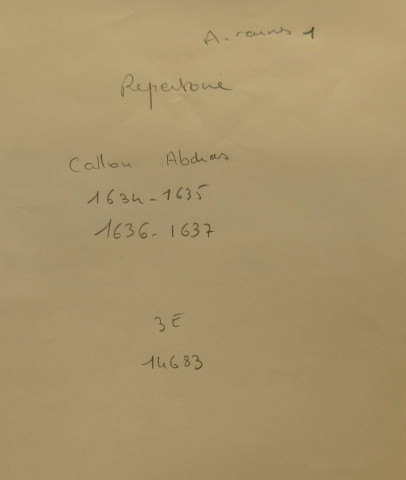 Repertoire
Callou Abdias
1634-1635
1636-1637
3E
14683